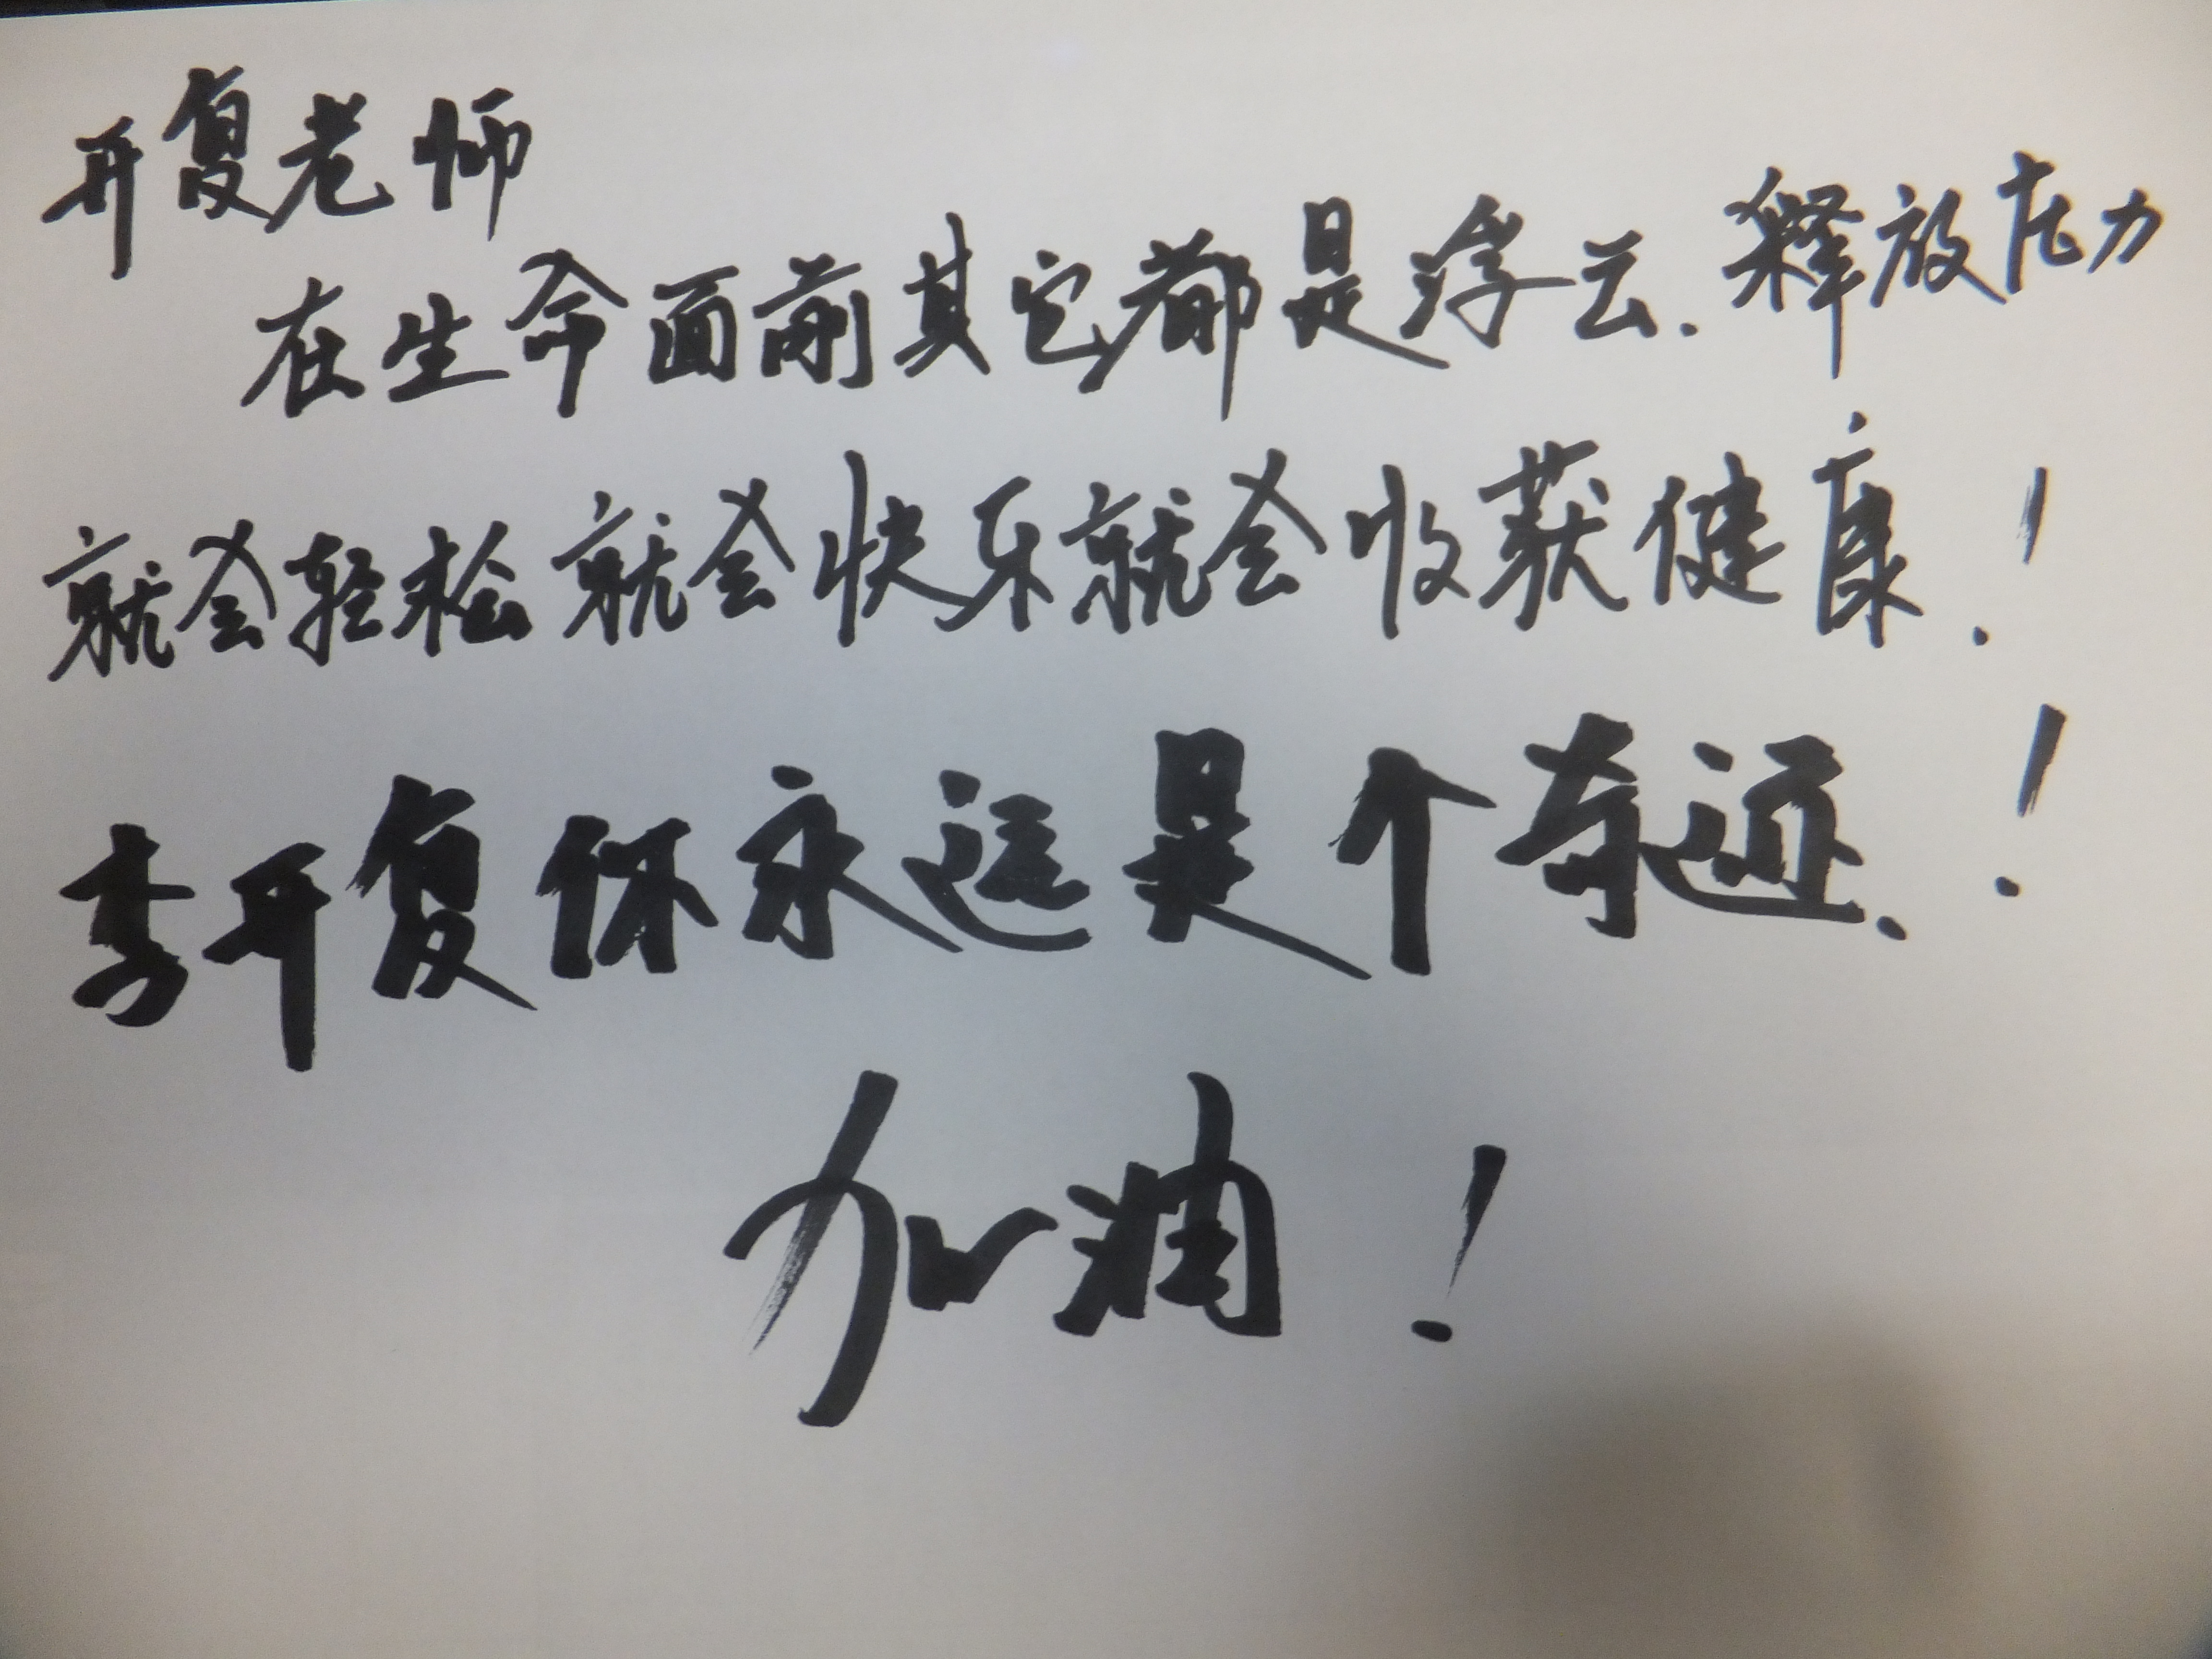 开复老师
在生命面前其它都是浮云.释放压力
就会轻松就会快乐就会收获健康!
李开复你永远是个奇迹.!
加油!